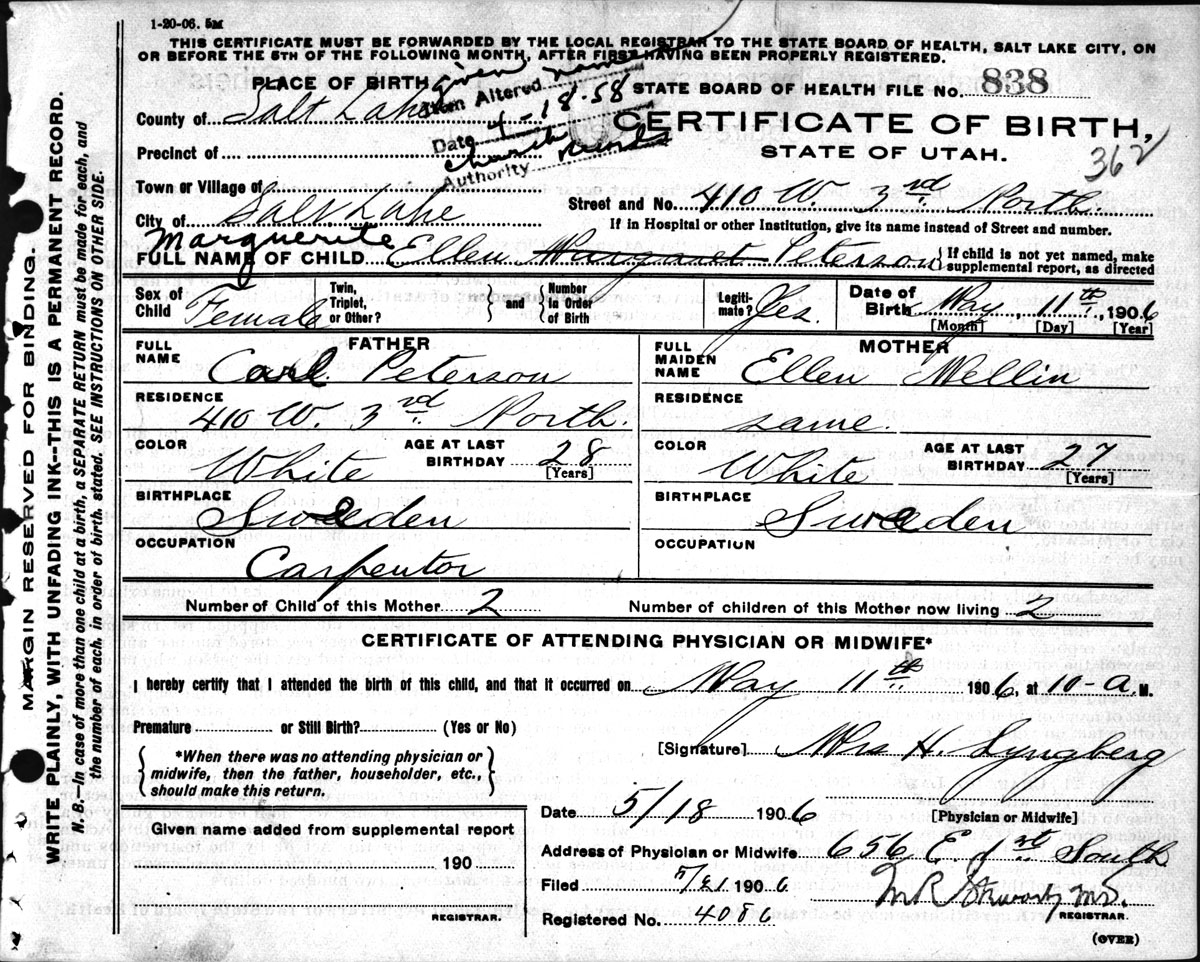 1-20-06. 5M
THIS CERTIFICATE MUST BE FORWARDED BY THE LOCAL REGISTRAR TO THE STATE BOARD OF HEALTH, SALT LAKE CITY, ON
OR BEFORE THE 5TH OF THE FOLLOWING MONTH, AFTER FIRST HAVING BEEN PROPERLY REGISTERED.
PLACE OF BIRTH
given name
Item Altered
STATE BOARD OF HEALTH FILE No. 838
County of Salt Lake
Date 4-18-58
CERTIFICATE OF BIRTH,
church records
Authority
STATE OF UTAH.
362
Precinct of
Town or Village of
Street and No. 410 W. 3rd North.
City of Salt Lake
If in Hospital or other Institution, give its name instead of Street and number.
Marguerite
FULL NAME OF CHILD Ellen Margaret Peterson
If child is not yet named, make supplemental report, as directed
Sex of Child Female
Twin, Triplet, or Other?
Number in Order of Birth
Legitimate? Yes.
Date of Birth May 11th, 1906
[Month] [Day] [Year]
FATHER
FULL NAME Carl Peterson
RESIDENCE 410 W. 3rd North.
COLOR White
AGE AT LAST BIRTHDAY 28 [Years]
BIRTHPLACE Sweeden
OCCUPATION Carpentor
MOTHER
FULL MAIDEN NAME Ellen Mellin
RESIDENCE same.
COLOR White
AGE AT LAST BIRTHDAY 27 [Years]
BIRTHPLACE Sweeden
OCCUPATION
Number of Child of this Mother 2
Number of children of this Mother now living 2
CERTIFICATE OF ATTENDING PHYSICIAN OR MIDWIFE*
I hereby certify that I attended the birth of this child, and that it occurred on May 11th 1906, at 10-A.M.
Premature or Still Birth? (Yes or No)
*When there was no attending physician or
midwife, then the father, householder, etc.,
should make this return.
[Signature] Mrs H. Lyngberg
[Physician or Midwife]
Date 5/18 1906
Given name added from supplemental report
190
REGISTRAR.
Address of Physician or Midwife 656 E. South
Filed 5/21 1906
M R Stewart MD.
REGISTRAR.
Registered No. 4086
(OVER)
MARGIN RESERVED FOR BINDING.
WRITE PLAINLY, WITH UNFADING INK--THIS IS A PERMANENT RECORD.
N. B.—In case of more than one child at a birth, a SEPARATE RETURN must be made for each, and
the number of each, in order of birth, stated. SEE INSTRUCTIONS ON OTHER SIDE.